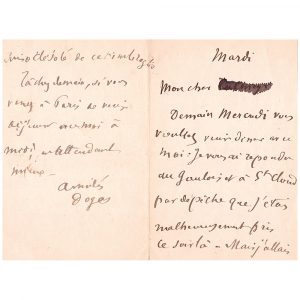 Mardi
Mon cher
Demain Mercredi vous
voulez venir dîner avec
moi. Je vais répondre
du Gaulois et à St Cloud
par dépêche que j'étais
malheureusement pris
ce soir là. Mais j'allais
désolé de ce
Tâchez demain, si vous
venez à Paris de venir
déjeuner avec moi à
midi, en attendant
amitiés
Degas